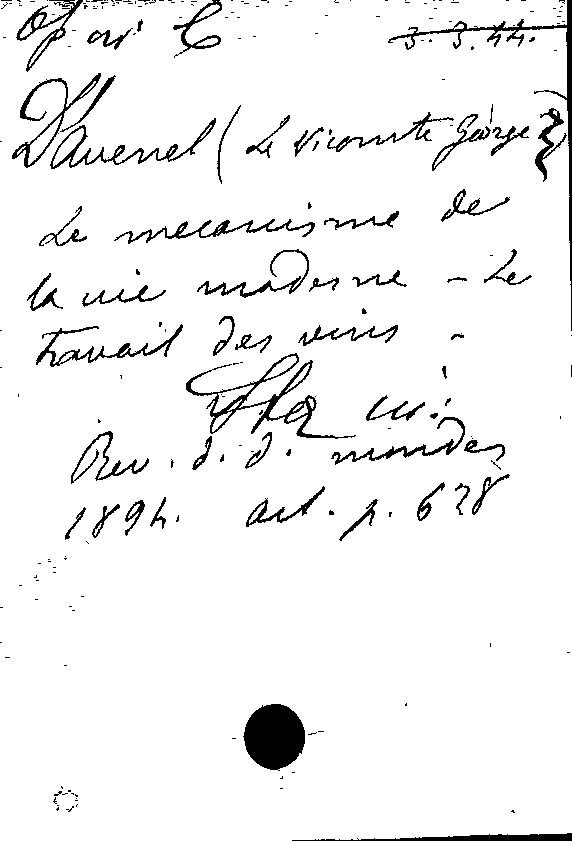 Op av C 3.3.44.
D'Avenel (Le Vicomte George)
Le mecanisme de
la vie moderne - Le
travail des vins -
Rev. d. d. mondes
1894. oct. p. 628